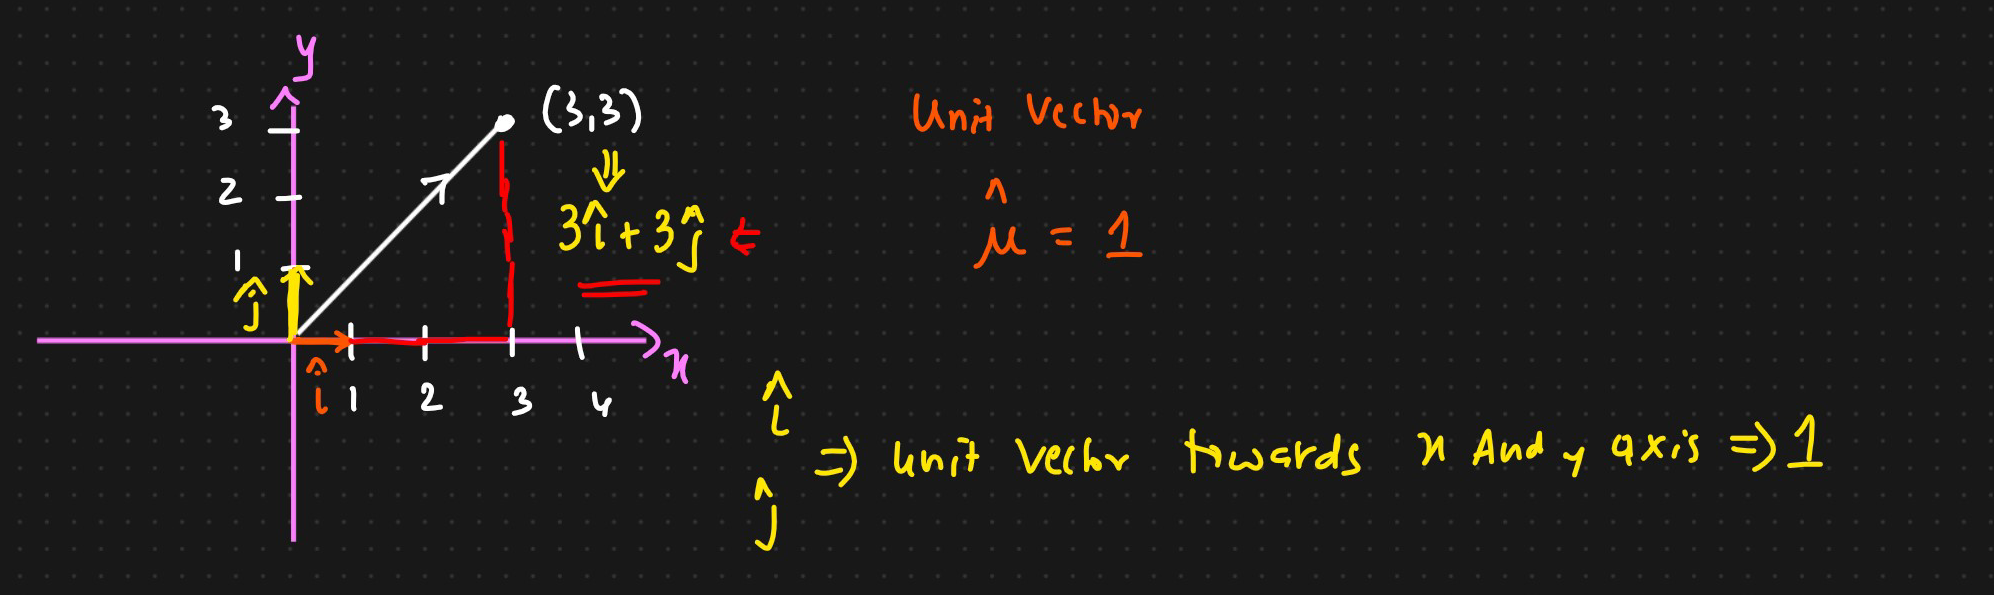 y
3
2
1
ĵ
î
1 2 3 4
x
(3,3)
⇓
3î + 3ĵ ←
Unit Vector
μ̂ = 1
î
ĵ
⇒ Unit Vector towards x And y axis ⇒ 1